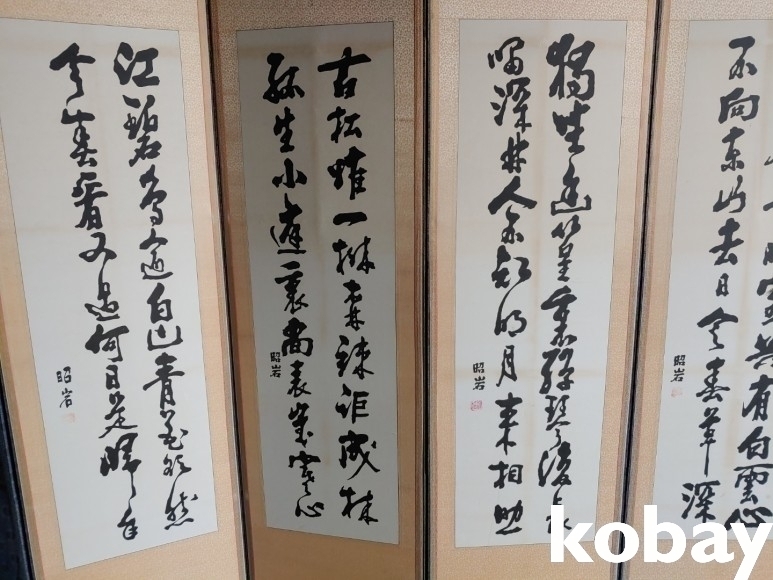 共有白雲心
不向東山去日令春草深
昭岩
獨坐幽篁裏彈琴復長
嘯深林人不知明月來相照
昭岩
古松雖一掬森疎詎成林
生小裏尚表歲寒心
昭岩
江碧鳥逾白山青花欲然
今春看又過何日是歸年
昭岩
kobay